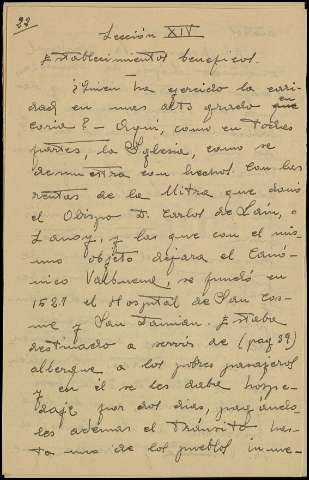 22
Lección XIV
Establecimientos beneficos.
¿Quien ha ejercido la cari-
dad en mas alto grado en
Coria? - Aqui, como en todas
partes, la Iglesia, como se
demuestra con hechos. Con las
rentas de la Mitra que donó
el Obispo D. Carlos de Laín, o
Lanoy, y las que con el mis-
mo objeto dejara el Canó-
nico Valbuena, se fundó en
1521 el Hospital de San Cos-
me y San Damian. Estaba
destinado a servir de (pag 39)
albergue a los pobres pasajeros
y en él se les daba hospe-
daje por dos dias, pagándo-
les ademas el tránsito has-
ta uno de los pueblos inme-